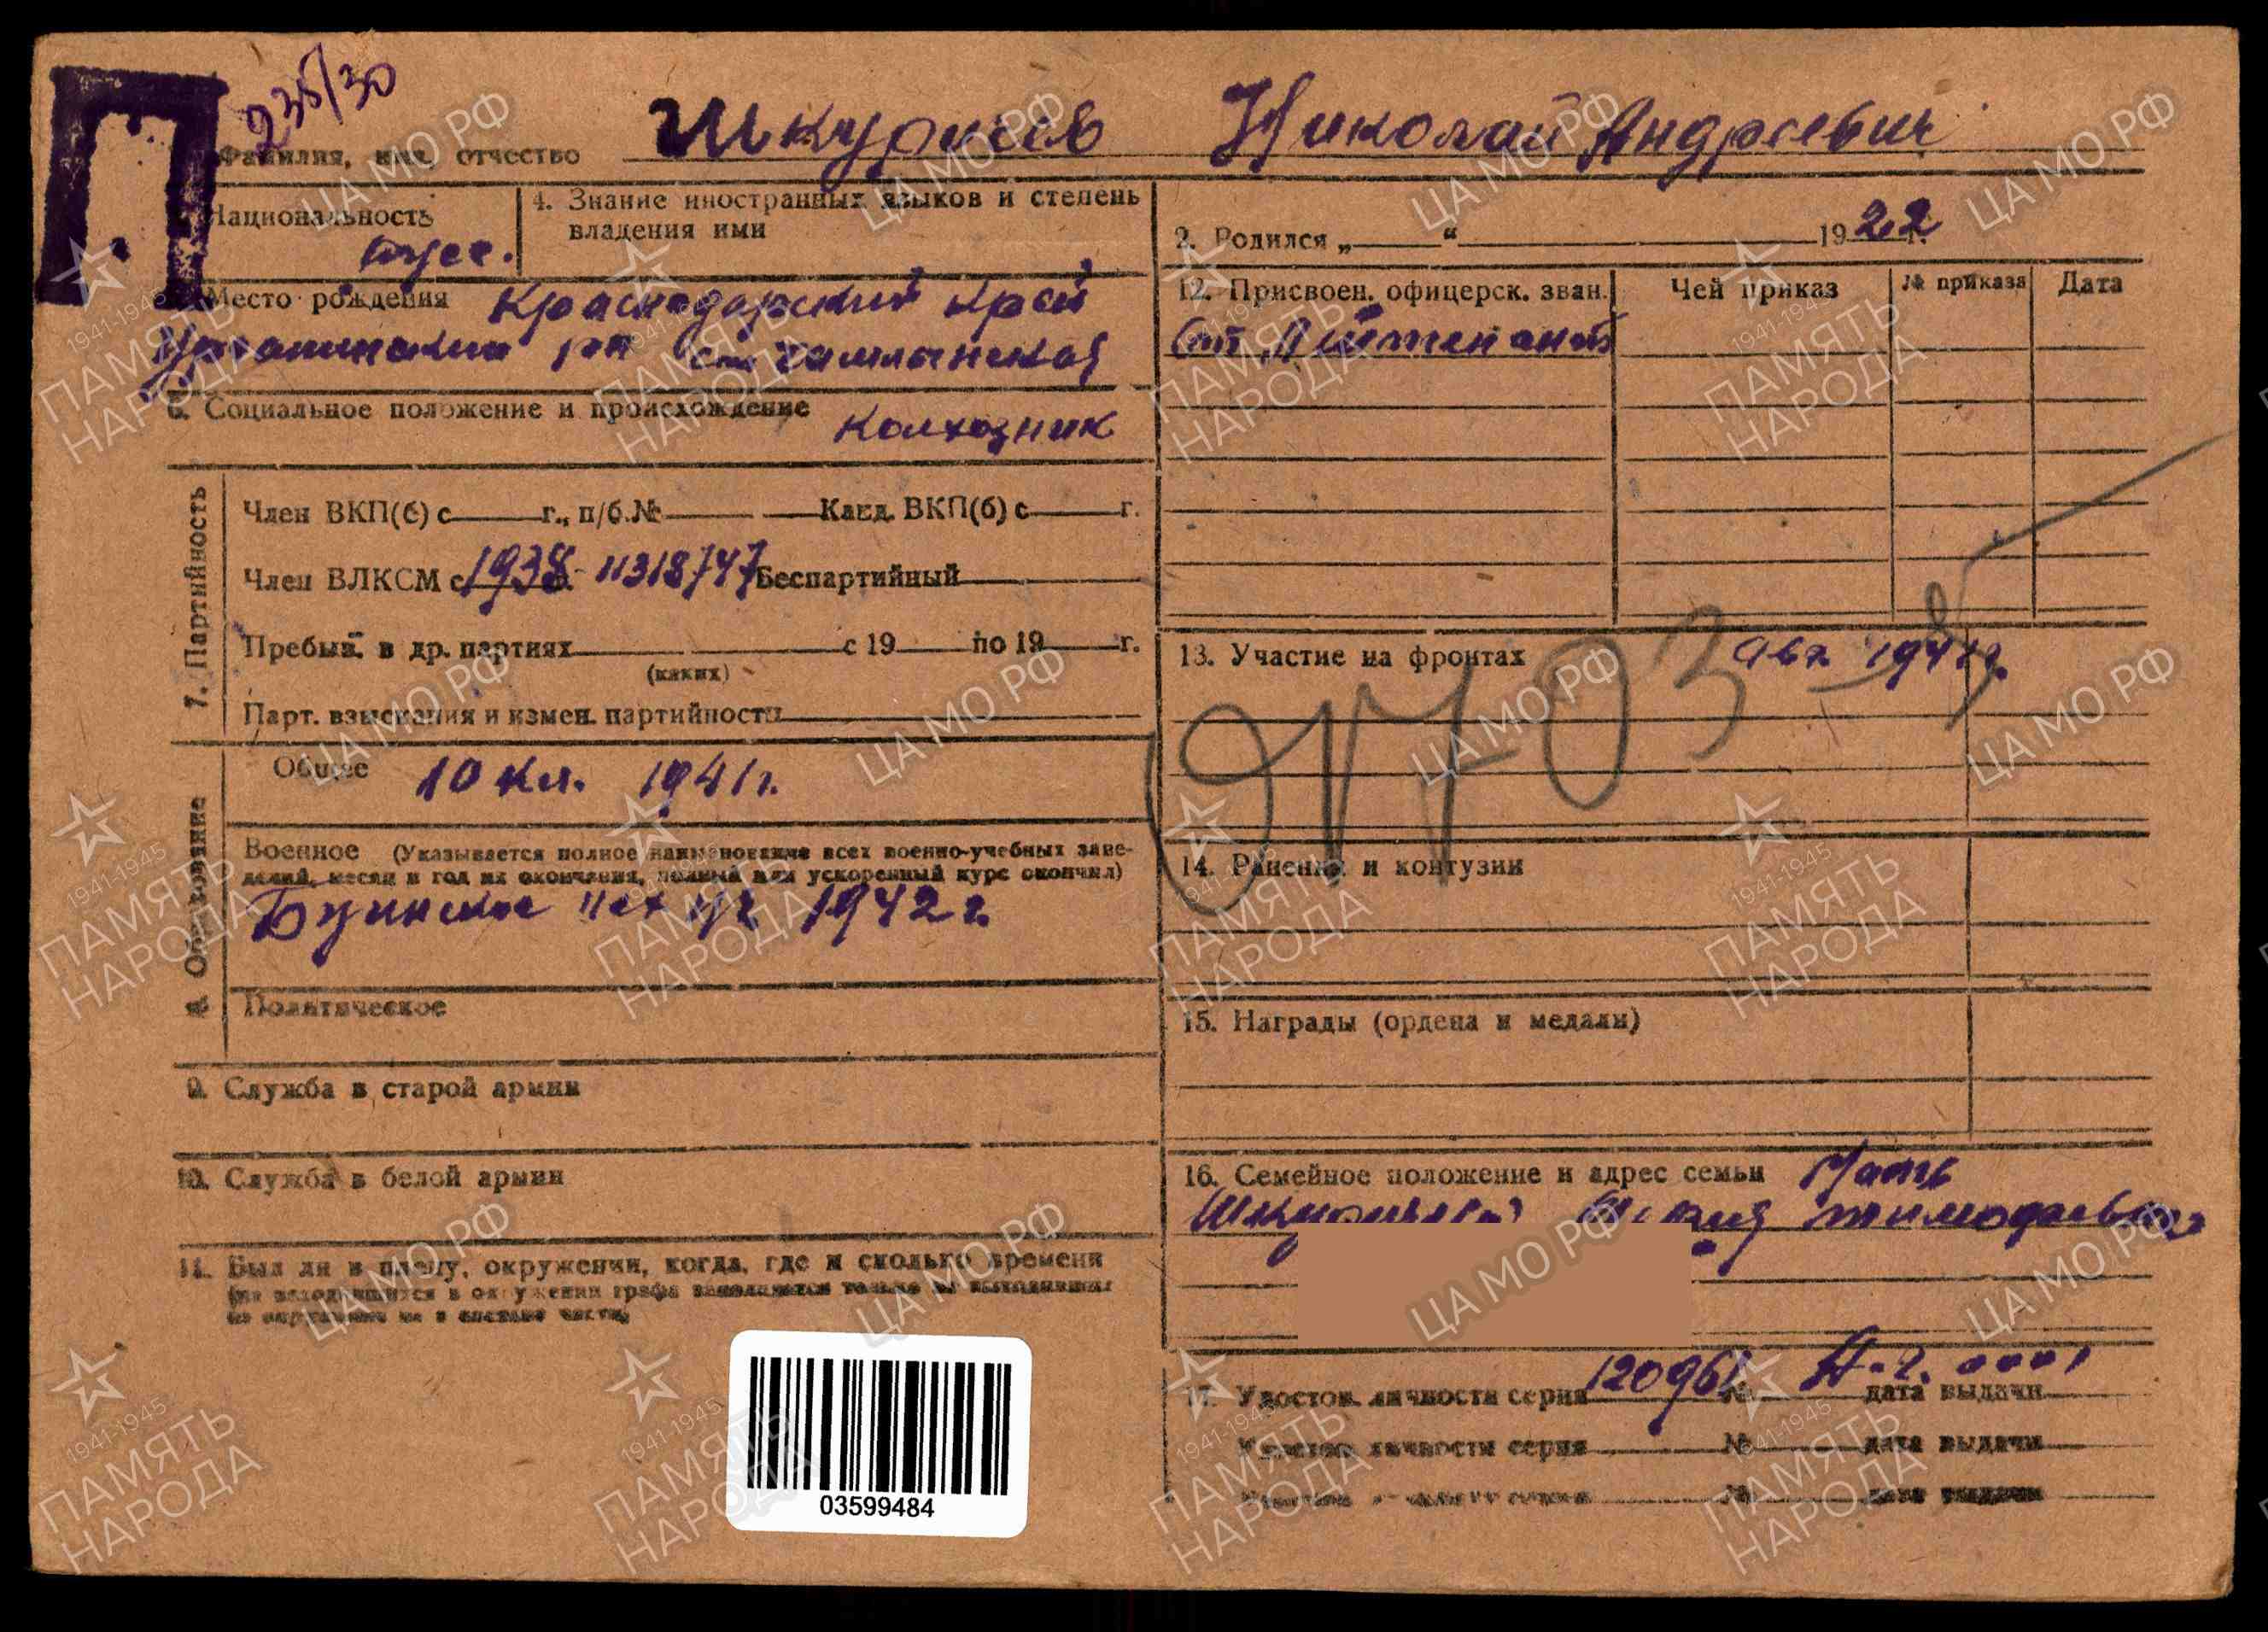 П
235/30
Фамилия, имя, отчество Николай Андреевич
Национальность
4. Знание иностранных языков и степень владения ими
2. Родился „ “ 1922 г.
Место рождения Краснодарский край
р-н
Социальное положение и происхождение колхозник
12. Присвоен. офицерск. зван. Чей приказ № приказа Дата
Ст Лейтенант
7. Партийность
Член ВКП(б) с г., п/б.№ Канд. ВКП(б) с г.
Член ВЛКСМ с 1938 11318747 Беспартийный
Пребыв. в др. партиях с 19 по 19 г.
(каких)
Парт. взыскания и измен. партийности
8. Образование
Общее 10 кл. 1941г.
Военное (Указывается полное наименование всех военно-учебных заве-
дений, месяц и год их окончания, полный или ускоренный курс окончил)
1942 г.
Политическое
9. Служба в старой армии
10. Служба в белой армии
11. Был ли в плену, окружении, когда, где и сколько времени
13. Участие на фронтах
14. Ранения и контузии
15. Награды (ордена и медали)
16. Семейное положение и адрес семьи Мать
17. Удостов. личности серия 120961 № дата выдачи
Удостов. личности серия № дата выдачи
Удостов. личности серия № дата выдачи
03599484
ЦА МО РФ
1941-1945
ПАМЯТЬ
НАРОДА